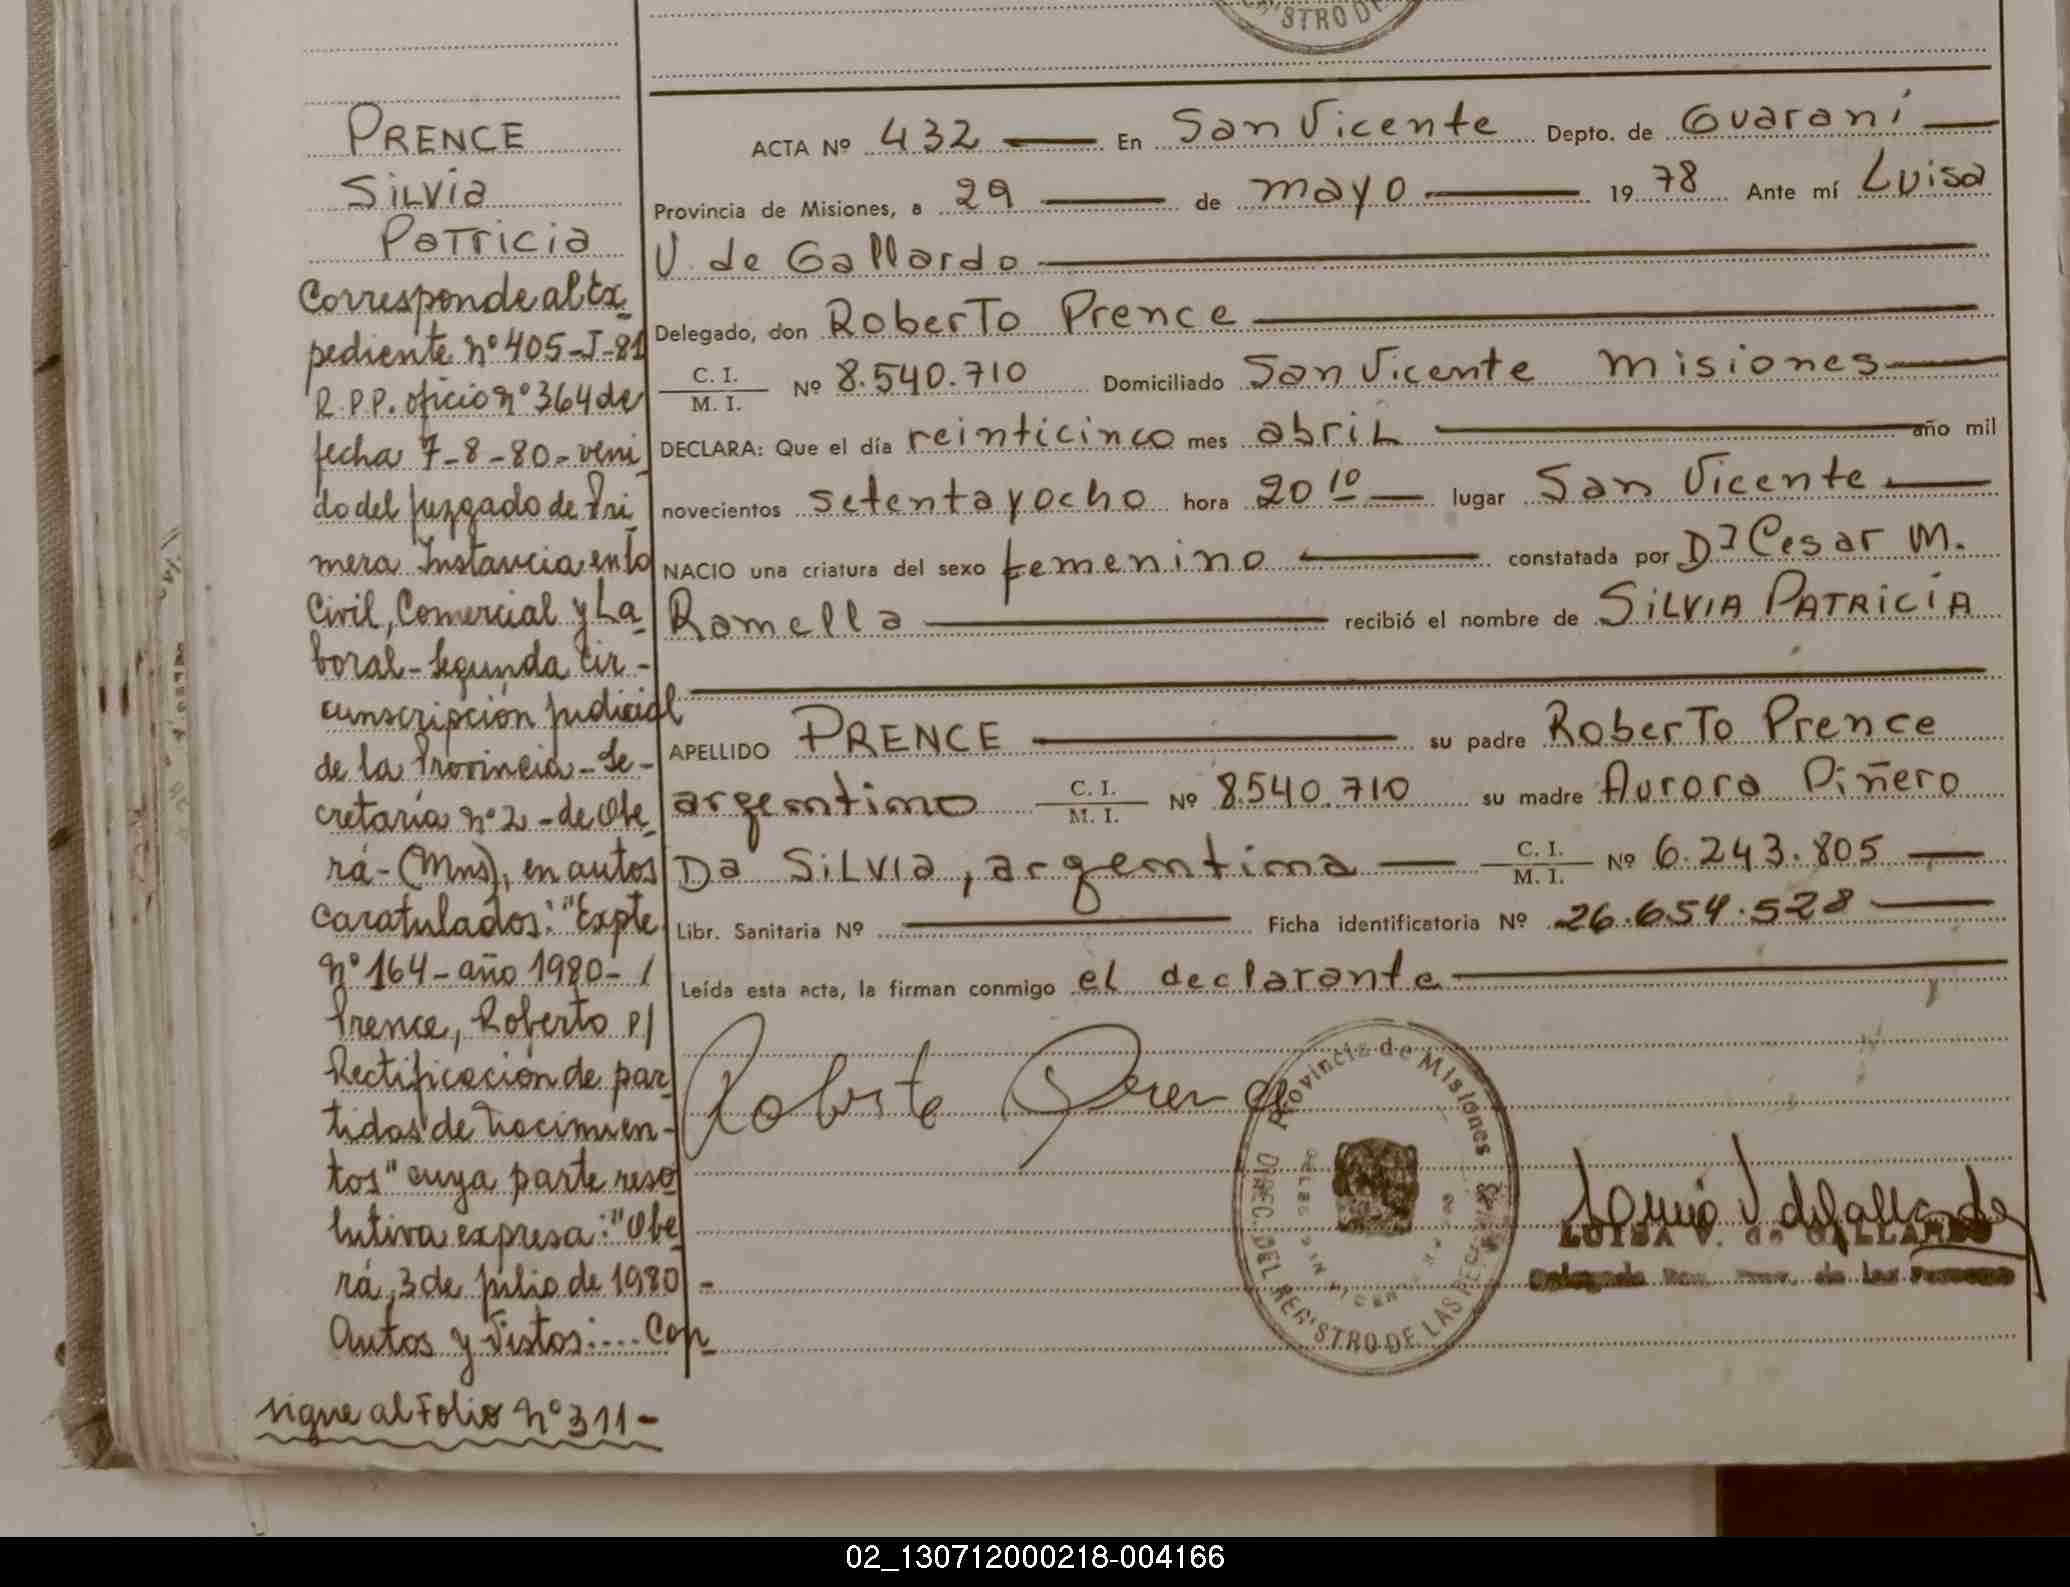 STRO DE
PRENCE
SiLVia
PaTricia
Corresponde al Ex
pediente nº 405-J-81
R.P.P. oficio nº 364 de
fecha 7-8-80- veni
do del Juzgado de Pri
mera Instancia en lo
Civil, Comercial y La
boral-Segunda Cir-
cunscripción Judicial
de la Provincia-Se-
cretaría nº 2 - de Obe
rá-(Mns), en autos
caratulados: "Expte
nº 164-año 1980- /
Prence, Roberto p/
Rectificación de par
tidas de nacimien-
tos" cuya parte reso
lutiva expresa: "Obe
rá, 3 de julio de 1980 -
Autos y Vistos:... Con
sigue al Folio nº 311-
ACTA Nº 432 En San Vicente Depto. de Guaraní
Provincia de Misiones, a 29 de mayo 19 78 Ante mí Luisa
V. de Gallardo
Delegado, don RoberTo Prence
C. I. / M. I. Nº 8.540.710 Domiciliado San Vicente Misiones
DECLARA: Que el día veinticinco mes abriL año mil
novecientos setentayocho hora 20 10 lugar San Vicente
NACIO una criatura del sexo femenino constatada por Dr Cesar M.
Ramella recibió el nombre de SiLVIA PATRICIA
APELLIDO PRENCE su padre RoberTo Prence
argentino C. I. / M. I. Nº 8.540.710 su madre Aurora Piñero
Da SiLVIa, argentina C. I. / M. I. Nº 6.243.805
Libr. Sanitaria Nº Ficha identificatoria Nº 26.654.528
Leída esta acta, la firman conmigo el declarante
Roberto Prence
Provincia de Misiones
DIREC. DEL REGISTRO DE LAS PE
LUISA V. de GALLARDO
Delegada de las Personas
02_130712000218-004166